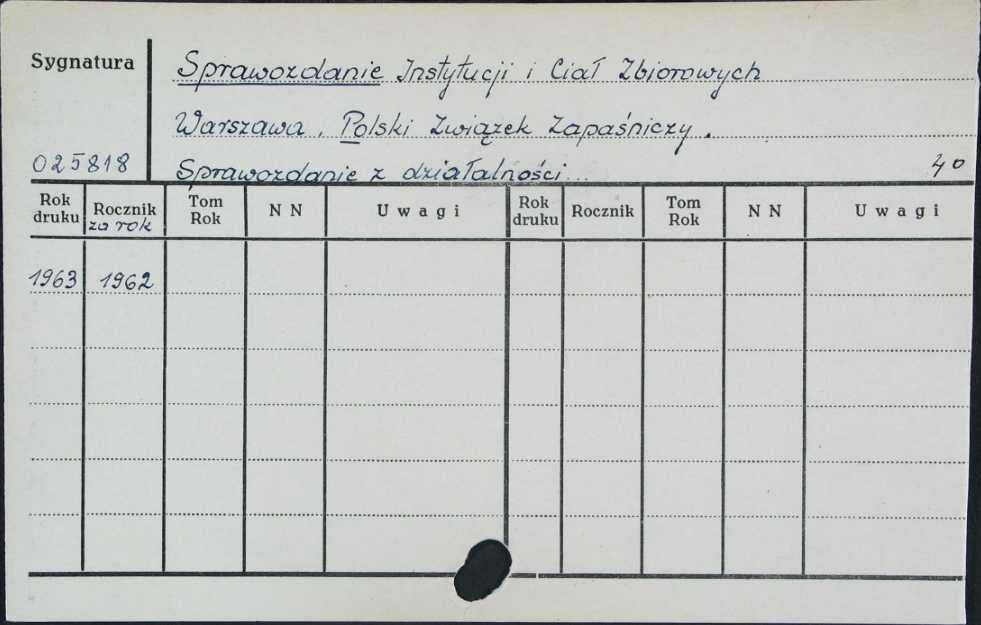 Sygnatura
Sprawozdanie Instytucji i Ciał Zbiorowych
Warszawa. Polski Związek Zapaśniczy.
025818
Sprawozdanie z działalności... 4o
Rok druku Rocznik za rok Tom Rok NN Uwagi Rok druku Rocznik Tom Rok NN Uwagi
1963 1962